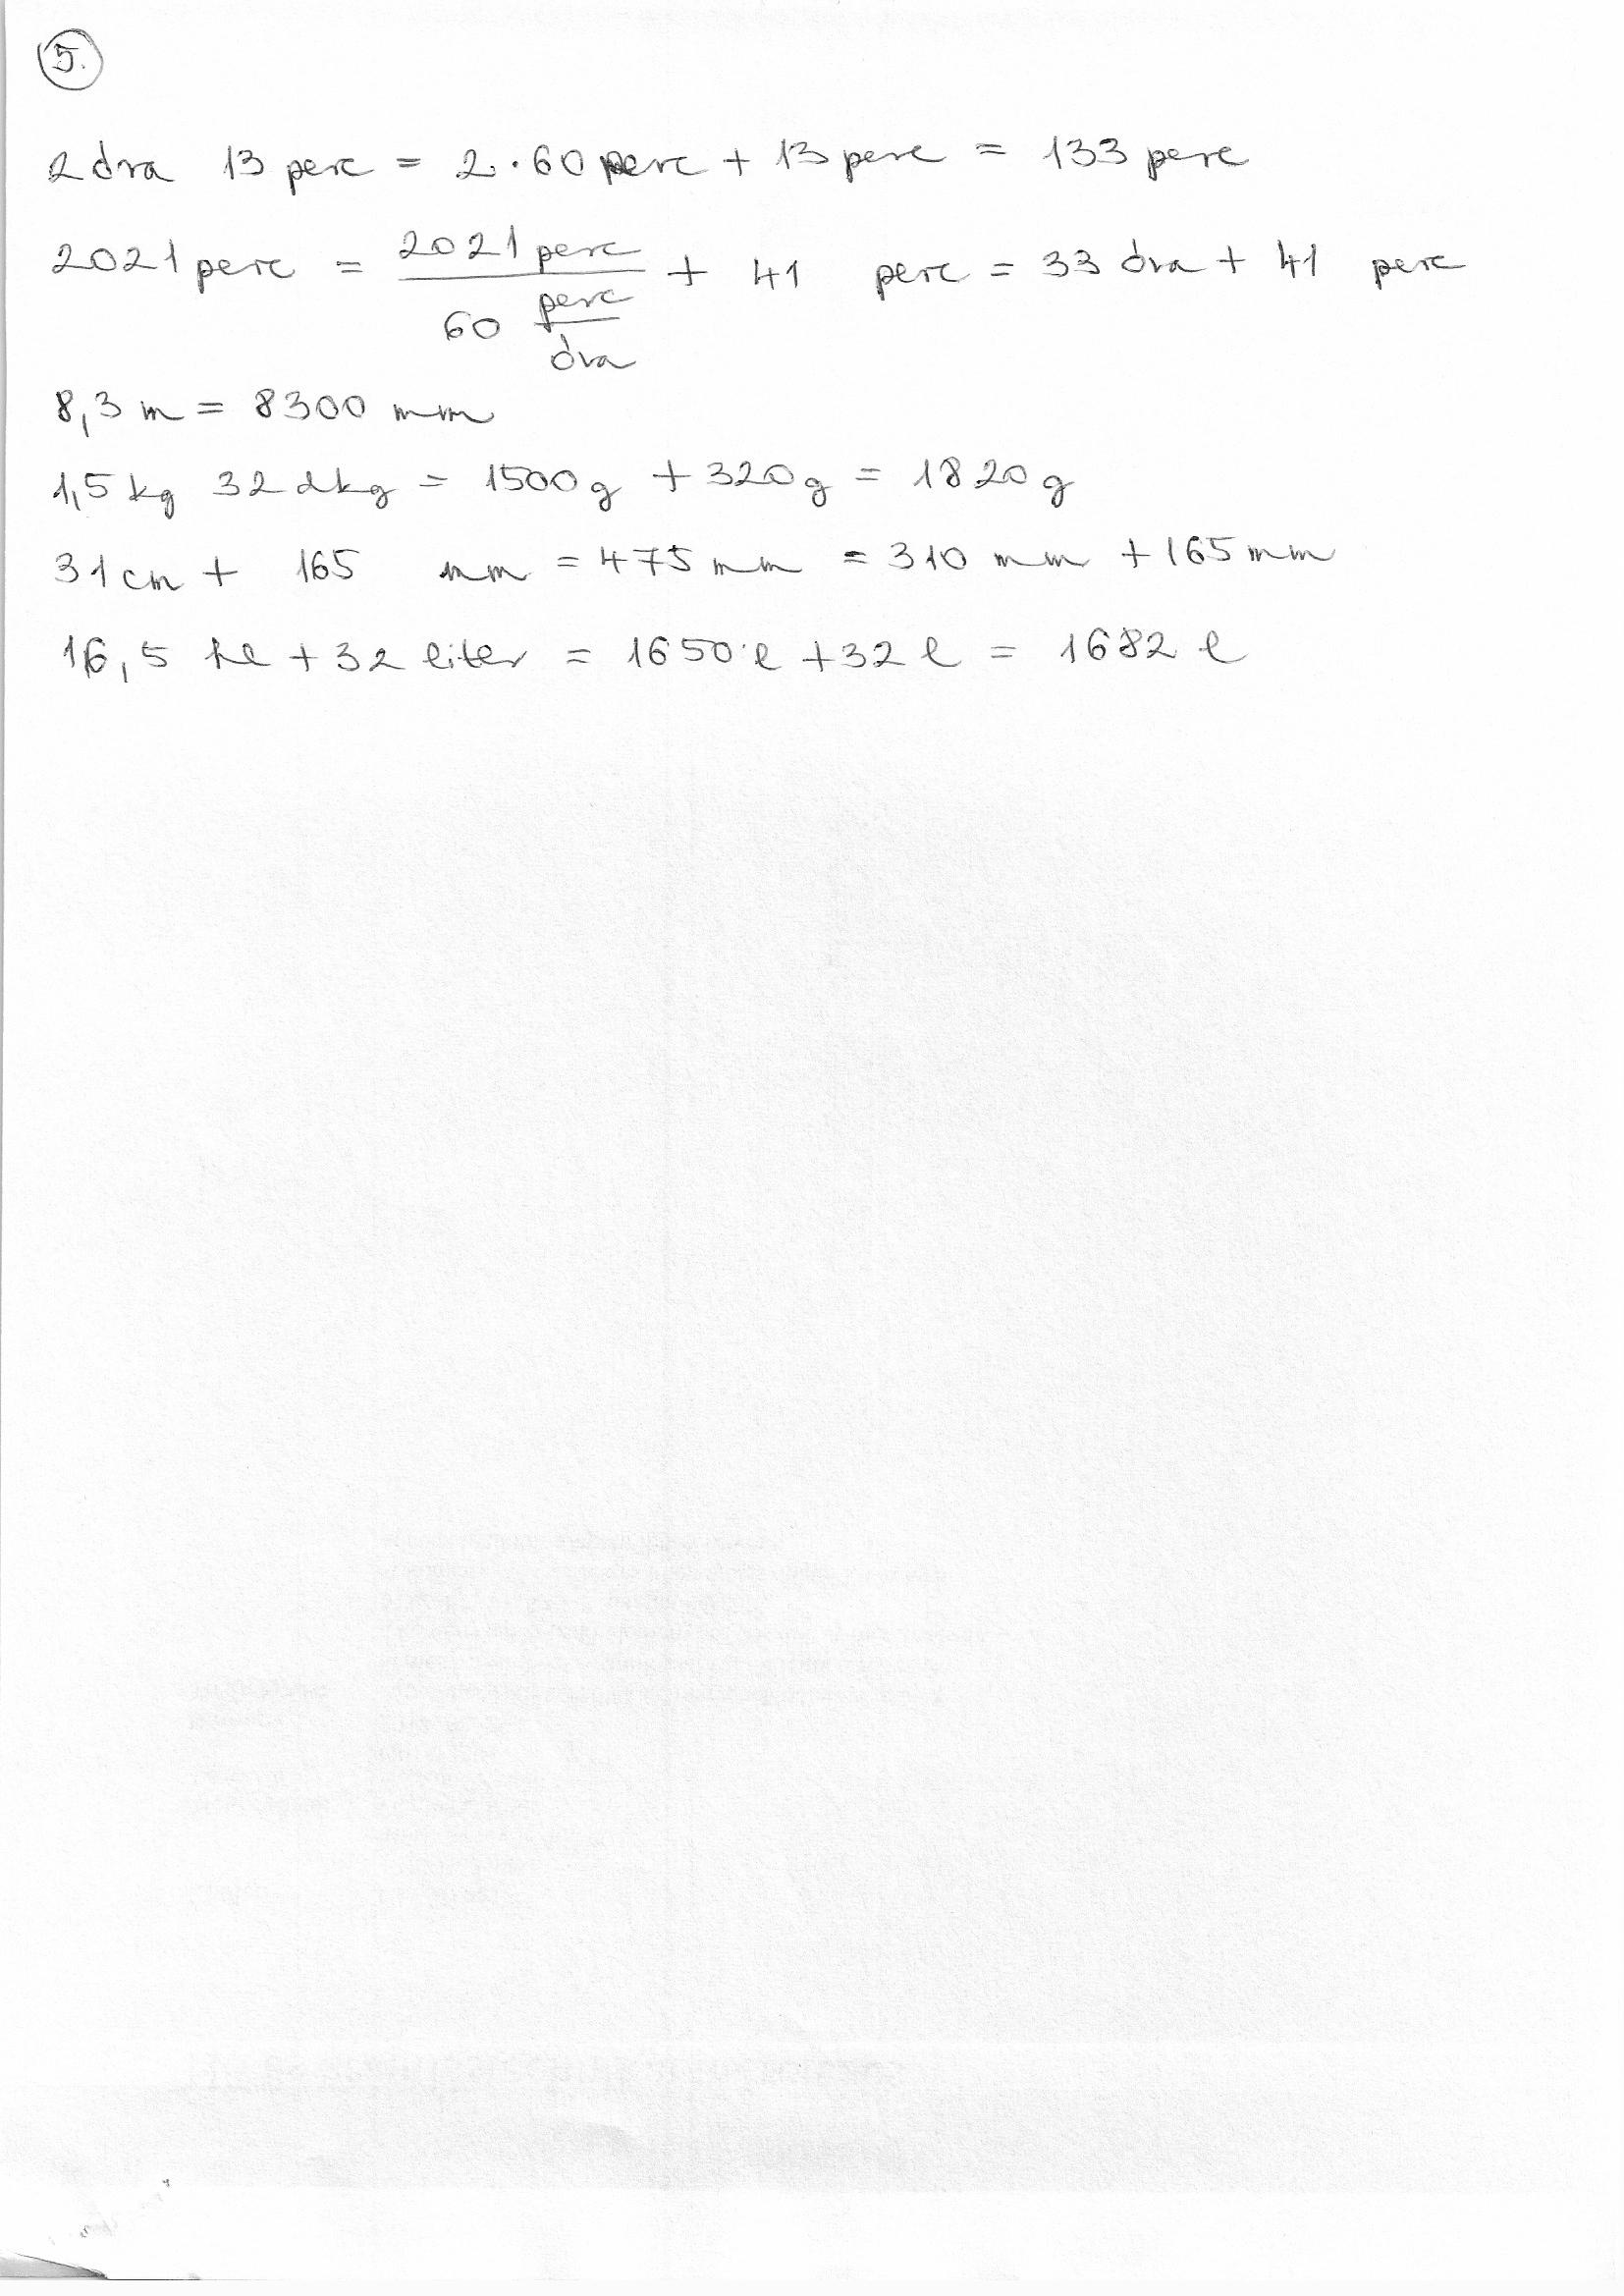 5.
2 óra 13 perc = 2 · 60 perc + 13 perc = 133 perc
2021 perc = 2021 perc / 60 perc/óra + 41 perc = 33 óra + 41 perc
8,3 m = 8300 mm
1,5 kg 32 dkg = 1500 g + 320 g = 1820 g
31 cm + 165 mm = 475 mm = 310 mm + 165 mm
16,5 hl + 32 liter = 1650 l + 32 l = 1682 l